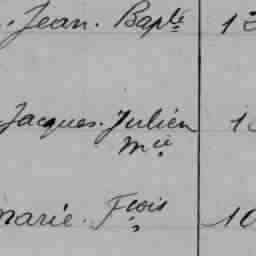 . Jean. Bapte
Jacques. Julien
Mie
marie. Frois 10